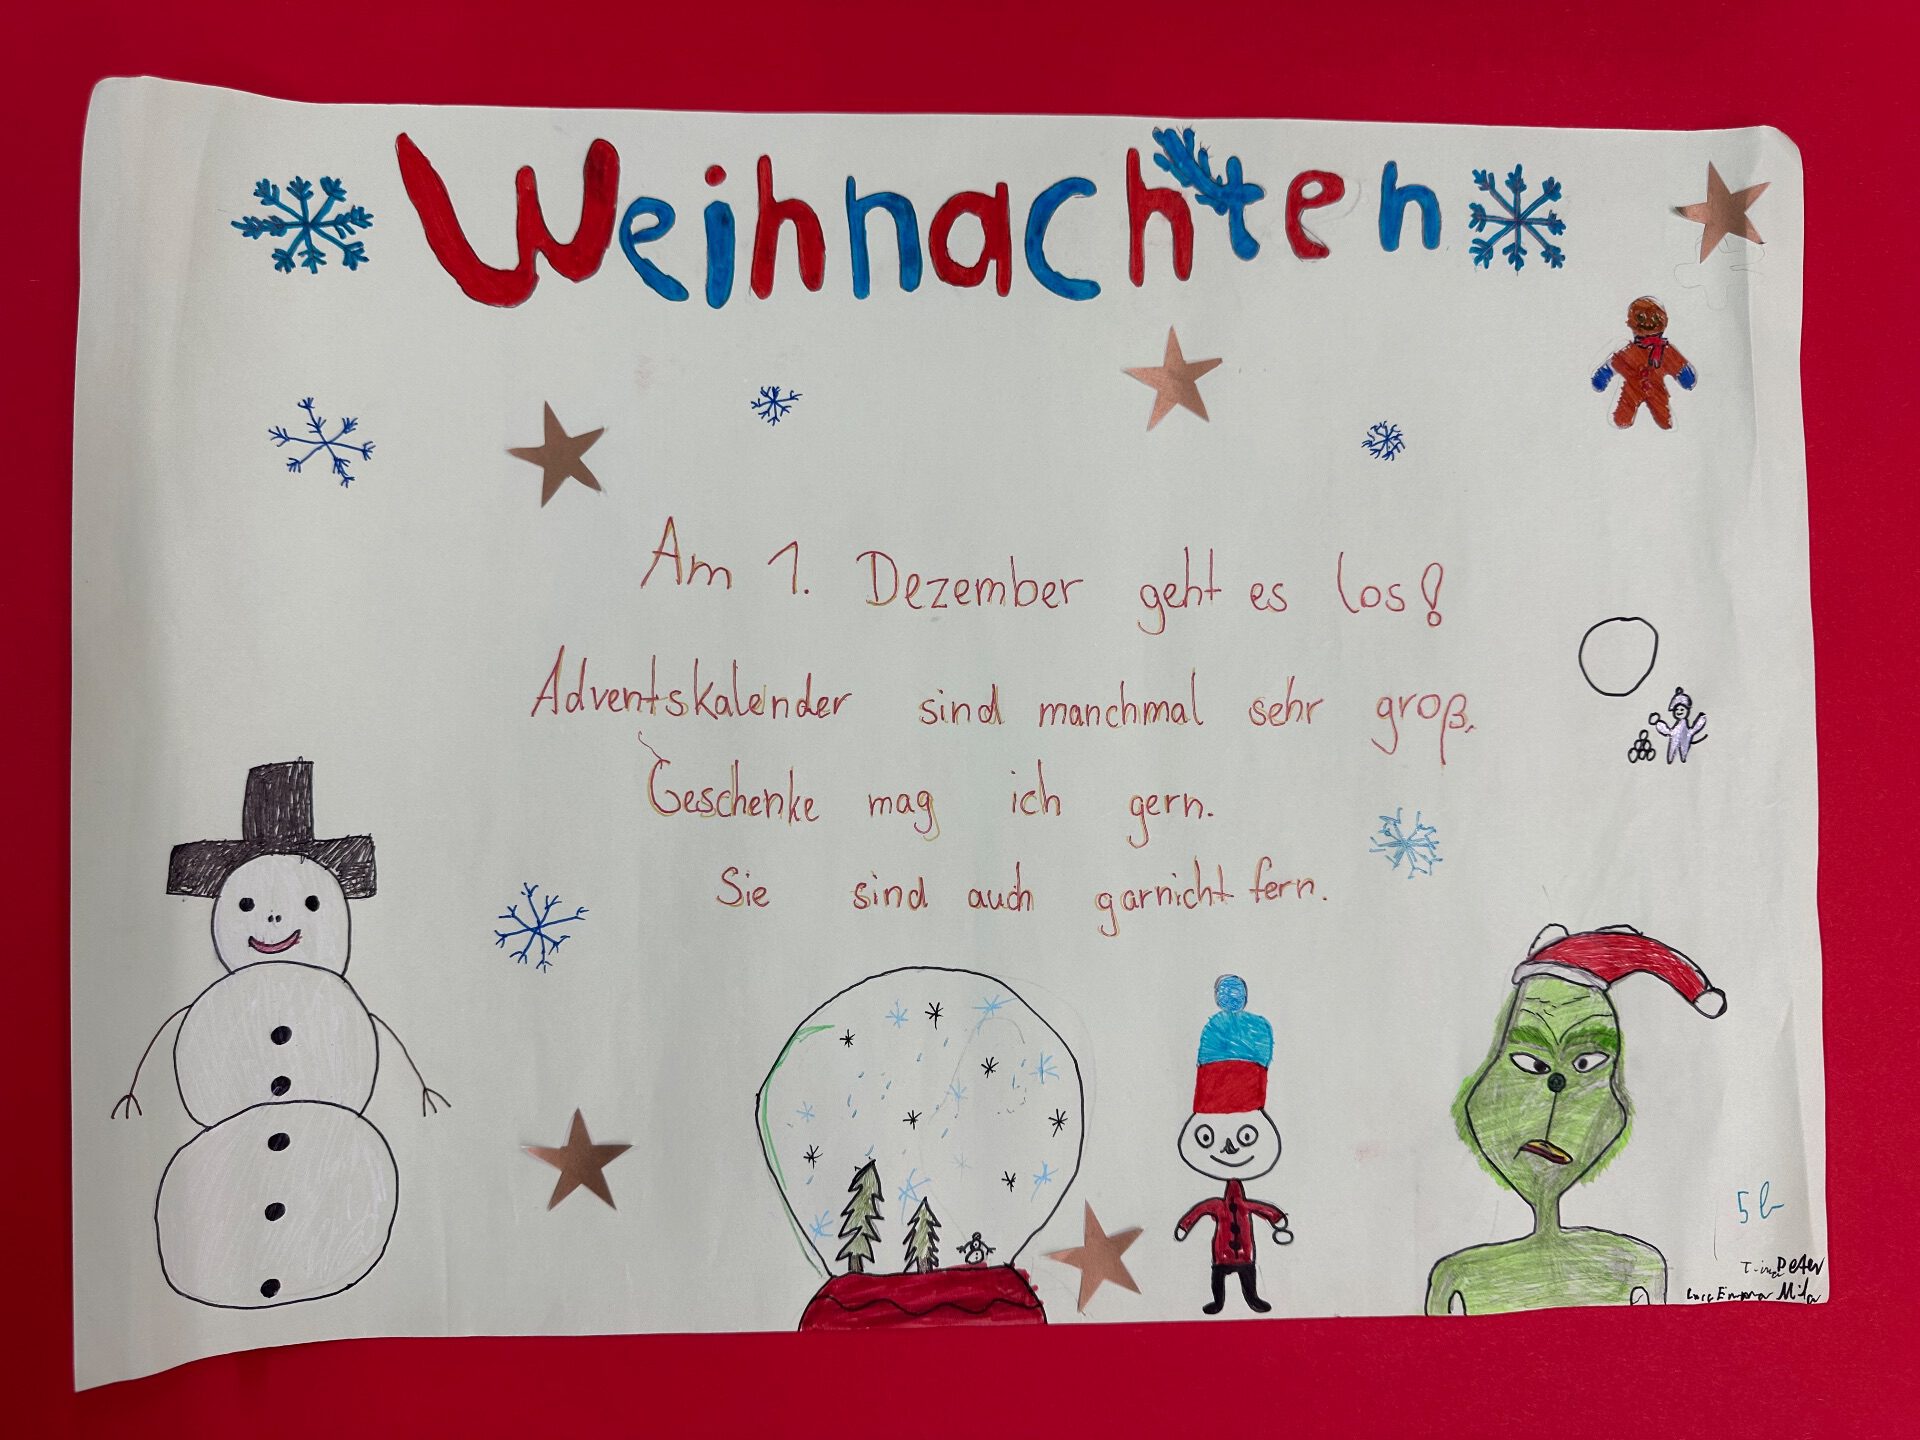 Weihnachten
Am 1. Dezember geht es los!
Adventskalender sind manchmal sehr groß.
Geschenke mag ich gern.
Sie sind auch garnicht fern.
5b
Peter
Emma Mila